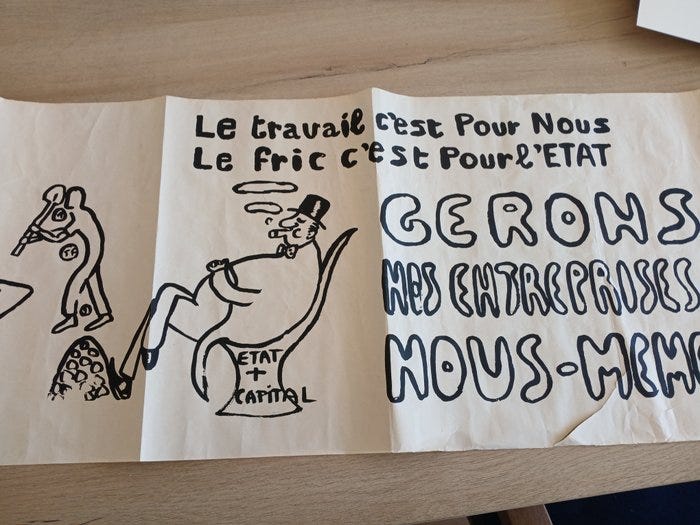 Le travail c'est Pour Nous
Le fric c'est Pour l'ETAT
GERONS
NOS ENTREPRISES
NOUS-MEME
ETAT
+
CAPITAL